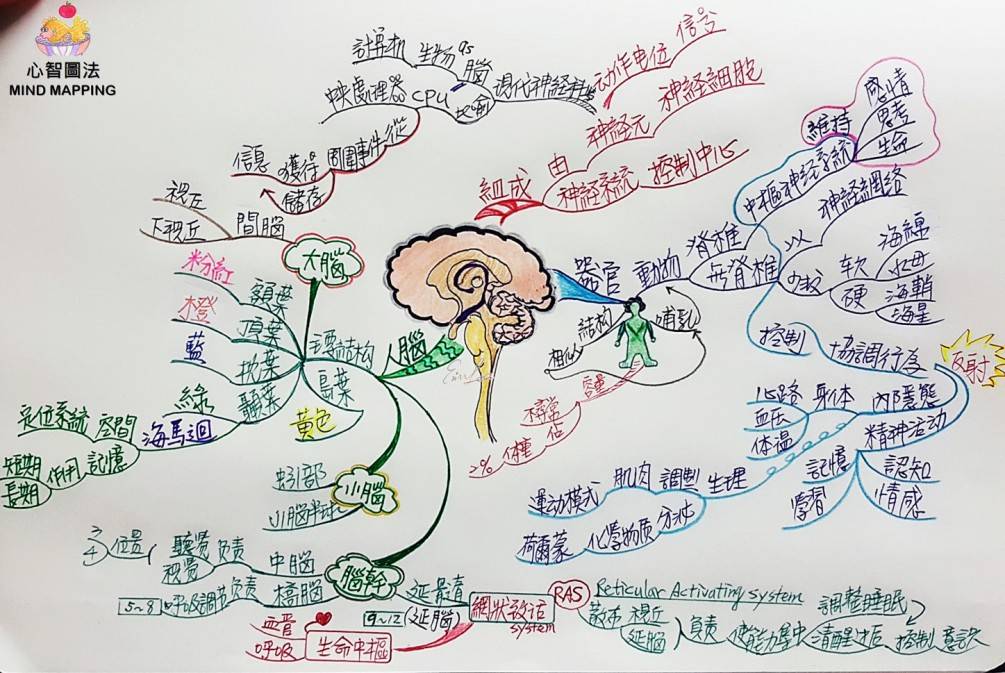 心智圖法
MIND MAPPING
計算机
生物
腦
現代神経科学
中央處理器
CPU
比喻
從
周圍事件
獲得
信息
儲存
组成
由
神経元
神経細胞
动作电位
信号
神経系統
控制中心
器官
動物
脊椎
無脊椎
以
中樞神経系統
維持
感情
思考
生命
神経網络
软
海綿
水母
硬
海鞘
海星
控制
協調行為
反射
內隱態
身体
心路
血压
体温
精神活动
認知
情感
記憶
學習
生理
調製
肌肉
運动模式
分泌
化學物质
荷爾蒙
哺乳
結構
相似
容量
佔
体種
2%
人腦
大腦
間腦
視丘
下視丘
粉紅
額葉
橙
頂葉
藍
枕葉
綠
顳葉
海馬迴
空間
定位系統
記憶
作用
短期
長期
島葉
黃色
小腦
蚓部
小腦半球
腦幹
中腦
負责
聽覺
視覺
位置
3/4
橋腦
負责
呼吸調节
5~8
延髓
(延腦)
9~12
網狀激活
system
RAS
Reticular Activating system
生命中樞
血管
呼吸
視丘
延腦
負责
使能力集中
清醒
控制
意識
調整睡眠